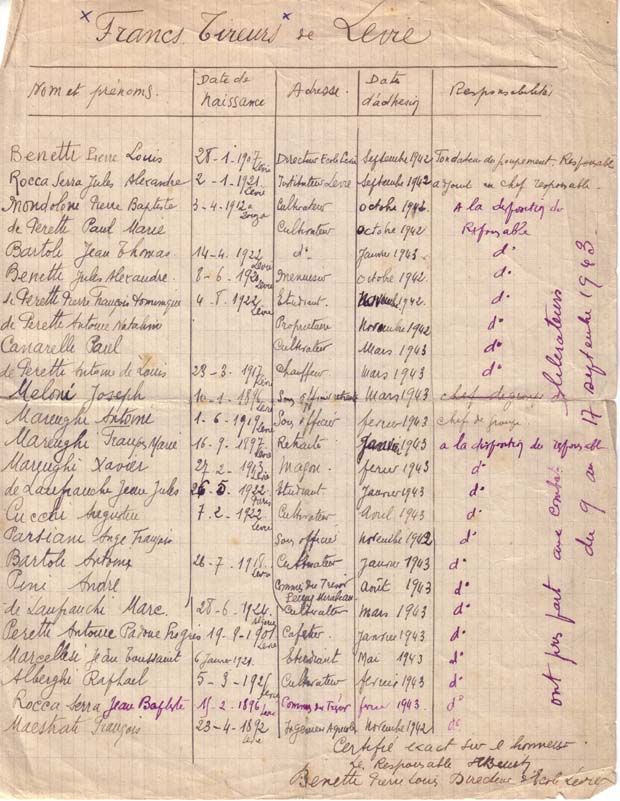 Francs Tireurs de Levie
Nom et prénoms. Date de naissance Adresse. Date d'adhésion Responsabilités
Benetti Pierre Louis 28-1-1907 Levie Directeur Ecole Levie Septembre 1942 Fondateur du groupement. Responsable
Rocca Serra Jules Alexandre 2-1-1921 Levie Instituteur Levie Septembre 1942 adjoint au chef responsable.
Mondoloni Pierre Baptiste 3-4-1912 Cultivateur octobre 1942 A la disposition du
de Peretti Paul Marie Cultivateur octobre 1942 responsable
Bartoli Jean Thomas 14-4-1922 Levie d° Janvier 1943 d°
Benetti Jules Alexandre. 8-6-1920 Levie menuisier octobre 1942 d°
de Peretti Pierre François Dominique 4-8-1922 Levie Etudiant. Novemb 1942 d°
de Peretti Antoine Natalin Propriétaire Novembre 1942 d°
Canarelli Paul Cultivateur Mars 1943 d°
de Peretti Antoine de Louis 23-3-1917 Levie Chauffeur Mars 1943 d°
Meloni Joseph 10-1-1896 Levie Sous officier retraité Mars 1943 chef de groupe
Marenghi Antoine 1-6-1919 Levie Sous officier fevrier 1943 Chef de groupe
Marenghi François Marie 16-9-1897 Levie Retraité Janvier 1943 a la disposition du responsable
Marenghi Xavier 27-2-1943 Levie Maçon fevrier 1943 d°
de Lanfranchi Jean Jules 26-5-1922 Paris Etudiant Janvier 1943 d°
Cucchi Augustin 7-2-1922 Levie Cultivateur Avril 1943 d°
Parsiani Ange François Sous officier novembre 1942 d°
Bartoli Antoine 26-7-1918 Levie Cultivateur janvier 1943 d°
Pini André Commis du Trésor Août 1943 d°
de Lanfranchi Marc. 28-6-1924 Cultivateur mars 1943 d°
Peretti Antoine Padoue 19-9-1901 Levie Cafetier Janvier 1943 d°
Marcellesi Jean Toussaint 6 Janv. 1921. Etudiant Mai 1943 d°
Alberghi Raphaël 5-3-1926 Levie Cultivateur fevrier 1943 d°
Rocca Serra Jean Baptiste 15-2-1896 Levie Commis du Trésor fevrier 1943 d°
Maestrati François 23-4-1892 Levie Ingénieur Agricole Novembre 1942 d°
ont pris part aux combats libérateurs
du 9 au 17 septembre 1943.
Certifié exact sur l'honneur
Le Responsable
Benetti Pierre Louis Directeur d'Ecole Levie